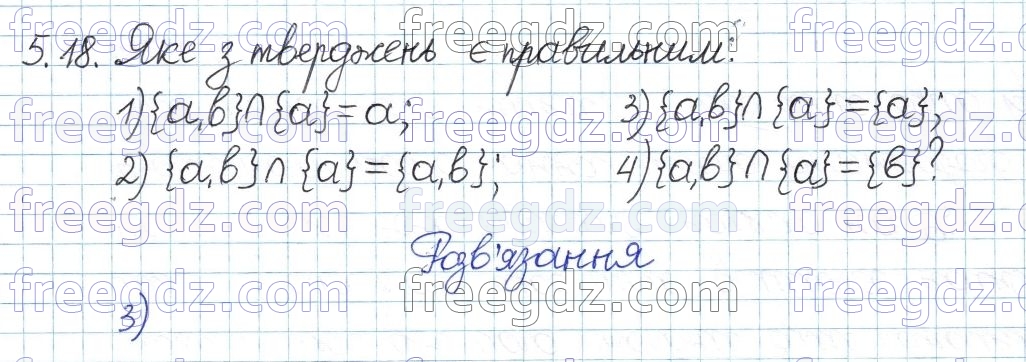 5.18. Яке з тверджень є правильним:
1) {a,b}∩{a}=a; 3) {a,b}∩{a}={a};
2) {a,b}∩{a}={a,b}; 4) {a,b}∩{a}={b}?
Розв'язання
3)
freegdz.com